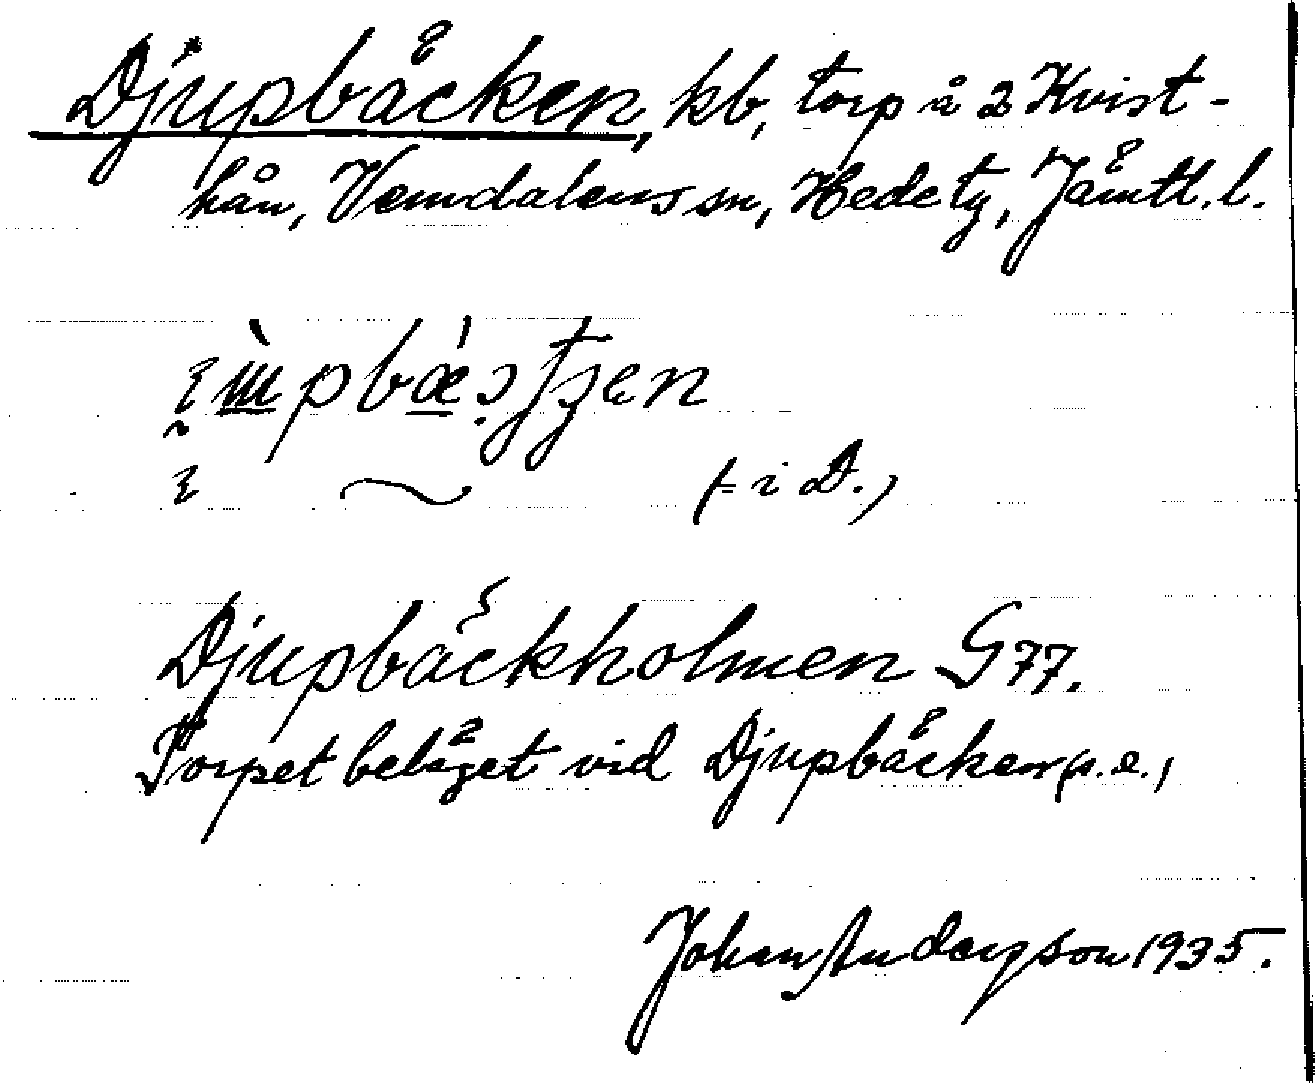 Djupbäcken, kb, torp å 2 Kvist-
hån, Vemdalens sn, Hede tg, Jämtl. l.
(= i D.)
Djupbäckholmen G 77.
Torpet beläget vid Djupbäcken (n.e.)
Johan Anderson 1935.